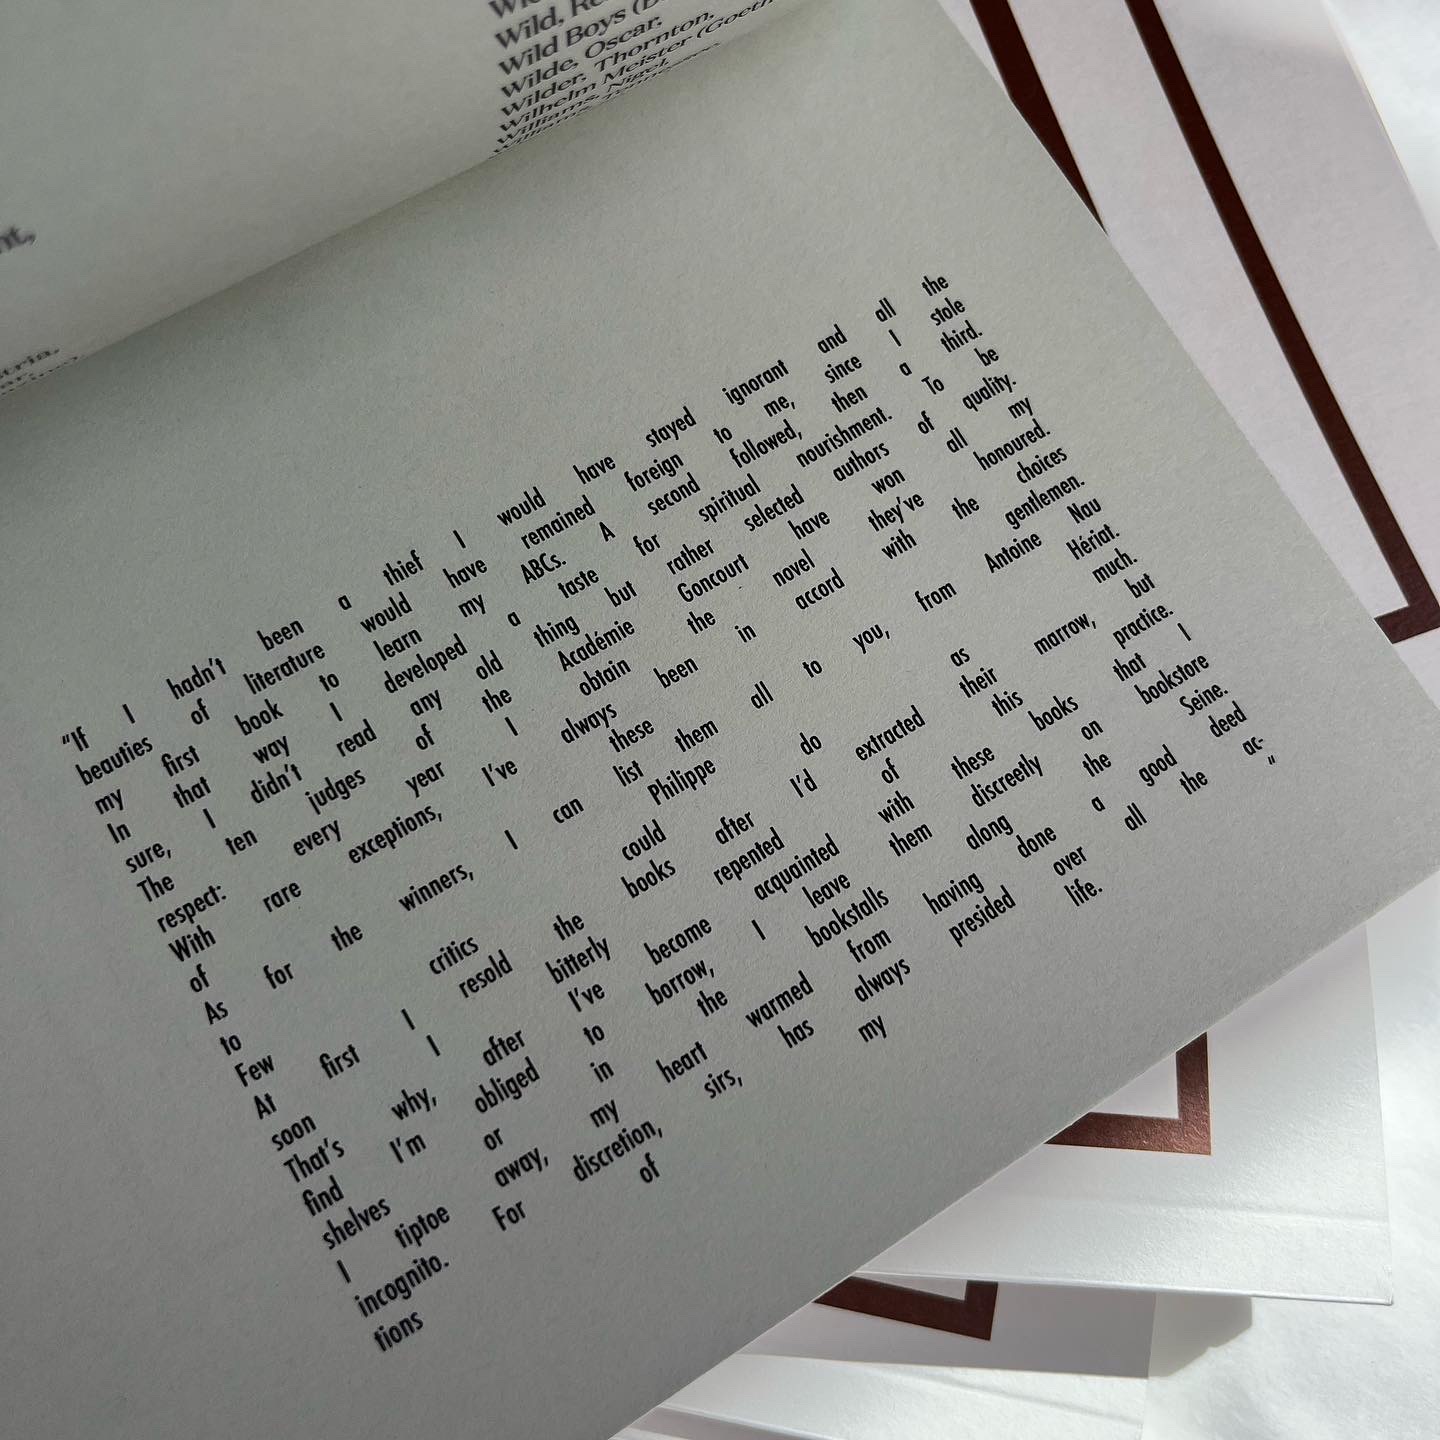 Wild, Re
Wild Boys (
Wilde, Oscar,
Wilder, Thornton,
Wilhelm Meister (Goeth
Williams, Nigel,
Williams,
nt,
tria,
"If I hadn't been a thief I would have stayed ignorant and all the
beauties of literature would have remained foreign to me, since I stole
my first book to learn my ABCs. A second followed, then a third.
In that way I developed a taste for spiritual nourishment. To be
sure, I didn't read any old thing but rather selected authors of quality.
The ten judges of the Académie Goncourt have won all my
respect: every year I obtain the novel they've honoured.
With rare exceptions, I've always been in accord with the choices
of these gentlemen.
As for the winners, I can list them all to you, from Antoine Nau
to Philippe Hériat.
Few critics could do as much.
At first I resold the books after I'd extracted their marrow, but
soon I repented bitterly of this practice.
That's why, after I've become acquainted with these books that I
find I'm obliged to borrow, I leave them discreetly on bookstore
shelves or in the bookstalls along the Seine.
I tiptoe away, my heart warmed from having done a good deed
incognito. For discretion, sirs, has always presided over all the ac-
tions of my life."